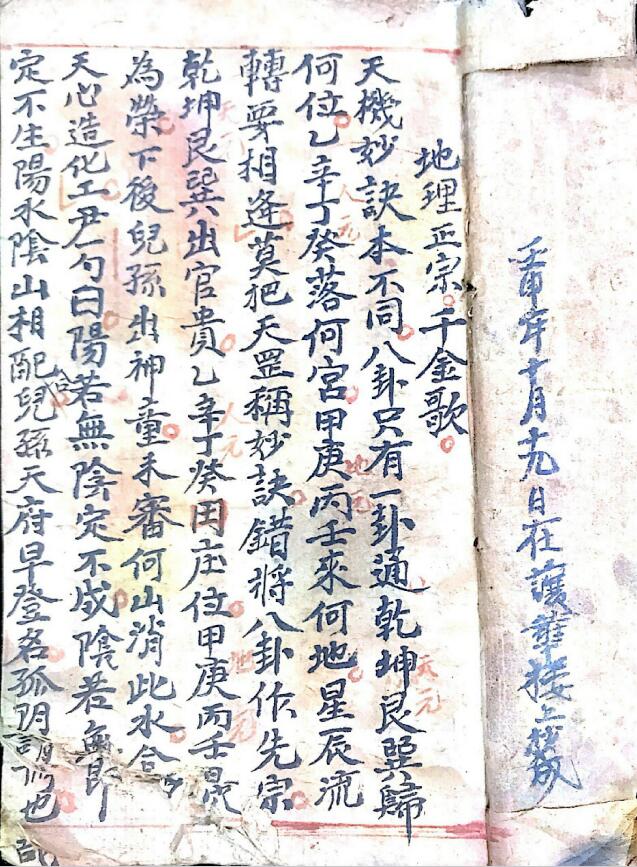 壬申年十月十九日在護華接上裝
地理正宗千金歌
天機妙訣本不同八卦只有一卦通乾坤艮巽歸
何位乙辛丁癸落何宮甲庚丙壬來何地星辰流
轉要相逢莫把天罡稱妙訣錯將八卦作先宗
乾坤艮巽出官貴乙辛丁癸田庄位甲庚丙壬
為榮下後兒孫出神童未審何山消此水合
天心造化工
曰陽若無陰定不成陰若無陽
定不生陽水陰山相配兒孫天府早登名
人元
地元
天元
人元
地元